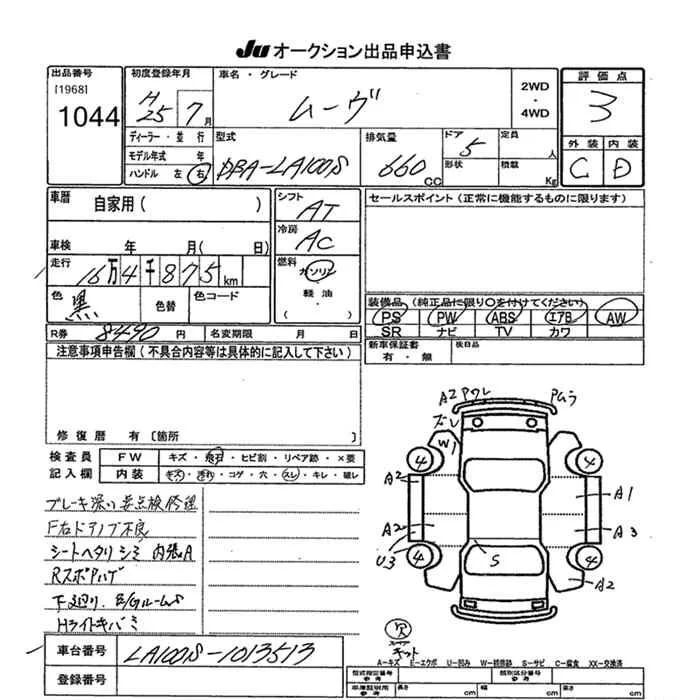 Ju オークション出品申込書
出品番号
[1968]
1044
初度登録年月
H25 7月
車名・グレード
ムーヴ
2WD
・
4WD
評価点
3
外装 内装
C D
ディーラー・並行
モデル年式 年
ハンドル 左 右
型式
DBA-LA100S
排気量
660 CC
ドア
5
形状
定員
人
積載
Kg
車歴
自家用( )
車検 年 月( 日)
走行
16万4千875 km
色
黒
色替
色コード
シフト
AT
冷房
AC
燃料
ガソリン
軽油
( )
セールスポイント(正常に機能するものに限ります)
装備品(純正品に限り○を付けてください)
PS PW ABS エアB AW
SR ナビ TV カワ
R券 8490 円
名変期限 月 日
新車保証書
有・無
後日品
注意事項申告欄(不具合内容等は具体的に記入して下さい)
修復歴 有〔箇所
検査員
記入欄
FW キズ・飛石・ヒビ割・リペア跡・×要
内装 キズ・汚れ・コゲ・穴・スレ・キレ・破レ
ブレーキ渋い 要点検修理
F右ドアノブ不良
シートヘタリ シミ 内張A
Rスポアハゲ
下廻り、E/Gルームサ
Hライトキバミ
A2 Pワレ
Pムラ
ズレ
W1
4
4
A2
A1
A2
A3
U3
4
4
S
A2
欠
キット
A―キズ E―エクボ U―凹み W―補修跡 S―サビ C―腐食 XX―交換済
車台番号
LA100S-1013513
登録番号
型式指定番号
参考
類別区分番号
参考
車庫証明用
参考
長さ cm
幅 cm
高さ cm